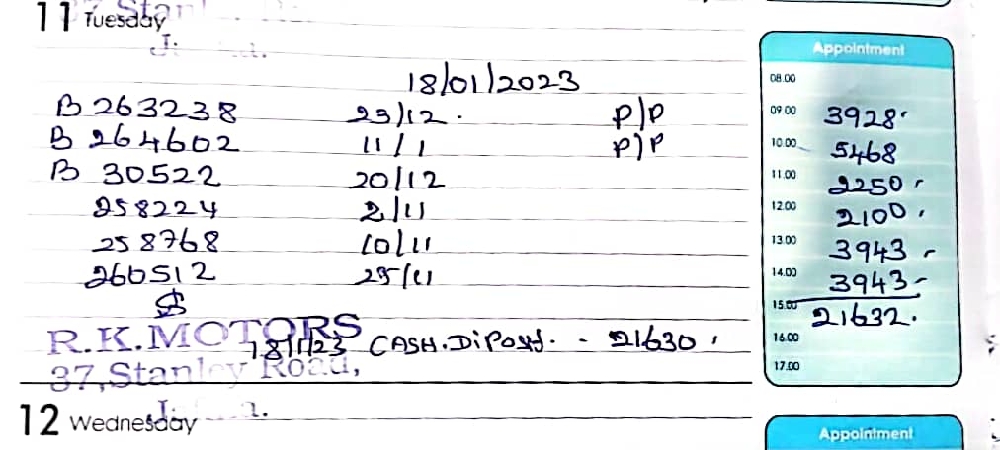 11 Tuesday
Appointment
18/01/2023
08.00
B 263238 23/12. P/P 09.00 3928.
B 264602 11/1 P/P 10.00 5468
B 30522 20/12 11.00 2250
258224 2/11 12.00 2100.
258768 10/11 13.00 3943
260512 25/11 14.00 3943
15.00 21632.
R.K.MOTORS
18/1/23 CASH.DiPosit. - 21630. 16.00
37,Stanley Road, 17.00
12 Wednesday
Appointment